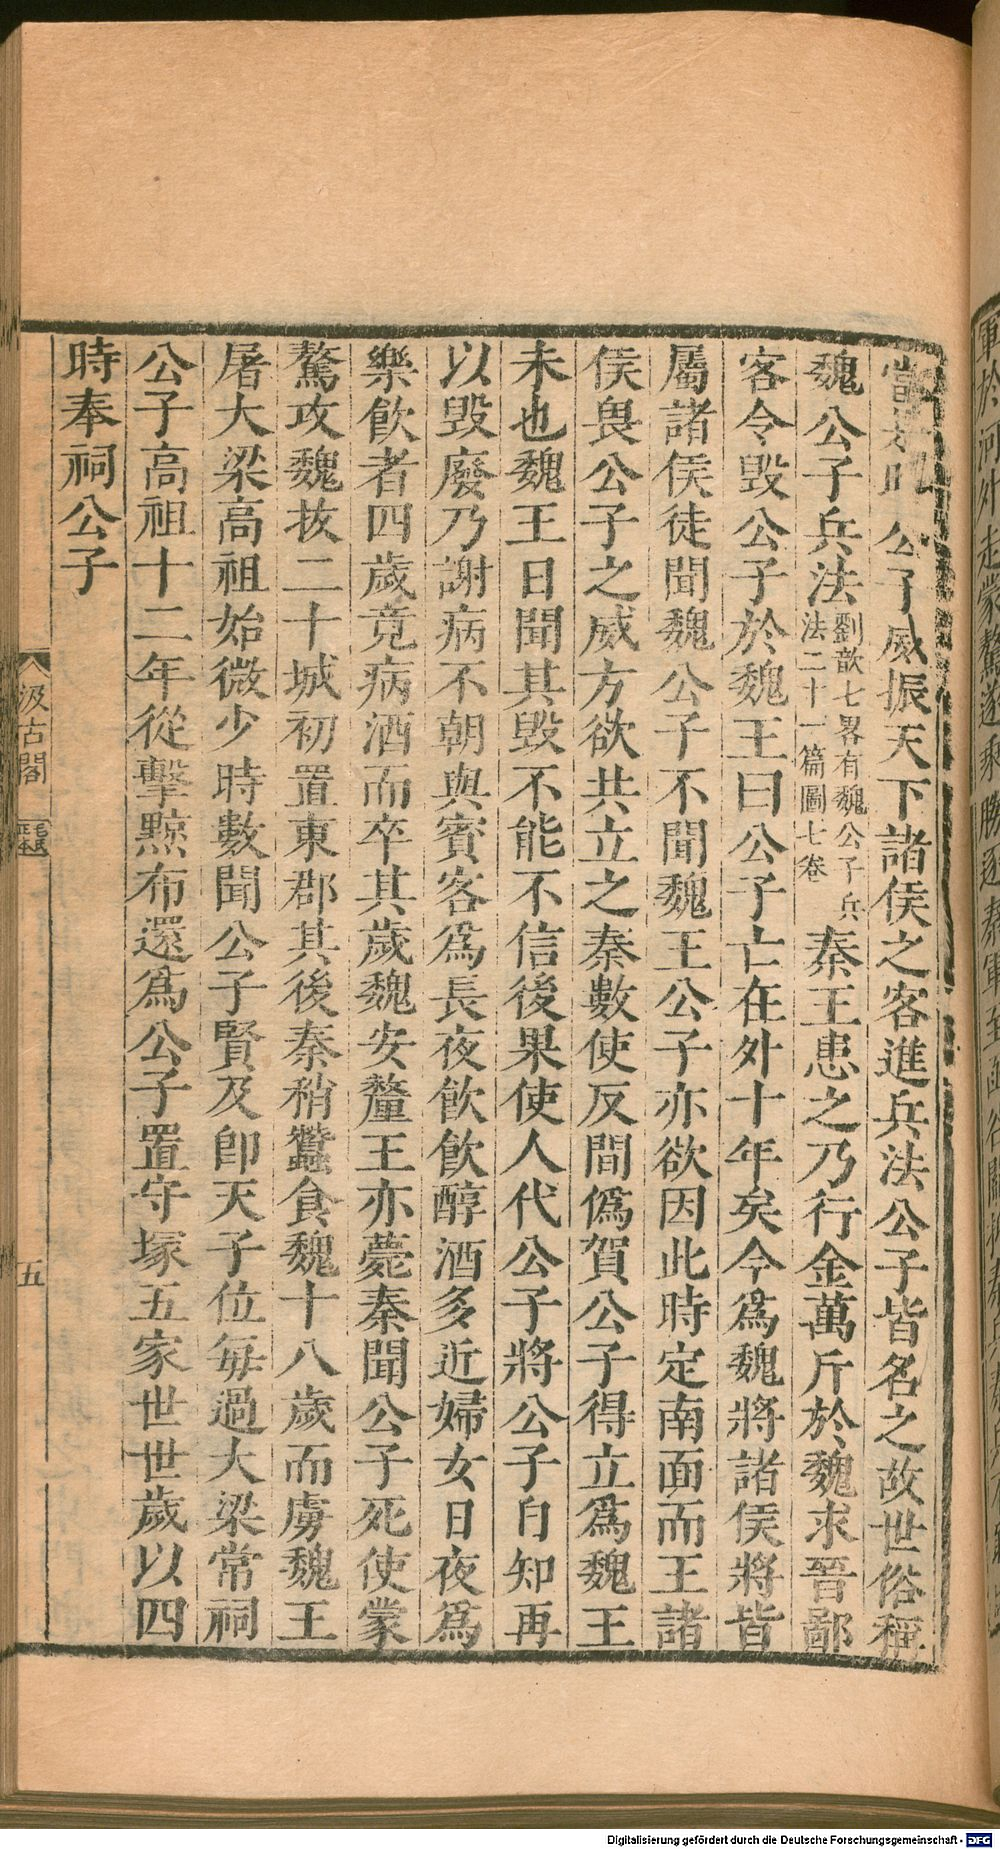 當是時公子威振天下諸侯之客進兵法公子皆名之故世俗稱
魏公子兵法劉歆七畧有魏公子兵法二十一篇圖七卷秦王患之乃行金萬斤於魏求晉鄙
客令毀公子於魏王曰公子亡在外十年矣今爲魏將諸侯將皆
屬諸侯徒聞魏公子不聞魏王公子亦欲因此時定南面而王諸
侯畏公子之威方欲共立之秦數使反間僞賀公子得立爲魏王
未也魏王日聞其毀不能不信後果使人代公子將公子自知再
以毀廢乃謝病不朝與賓客爲長夜飮飮醇酒多近婦女日夜爲
樂飮者四歲竟病酒而卒其歲魏安釐王亦薨秦聞公子死使蒙
驁攻魏拔二十城初置東郡其後秦稍蠶食魏十八歲而虜魏王
屠大梁高祖始微少時數聞公子賢及卽天子位每過大梁常祠
公子高祖十二年從擊黥布還爲公子置守塚五家世世歲以四
時奉祠公子
汲古閣
毛氏正本
五
Digitalisierung gefördert durch die Deutsche Forschungsgemeinschaft - DFG